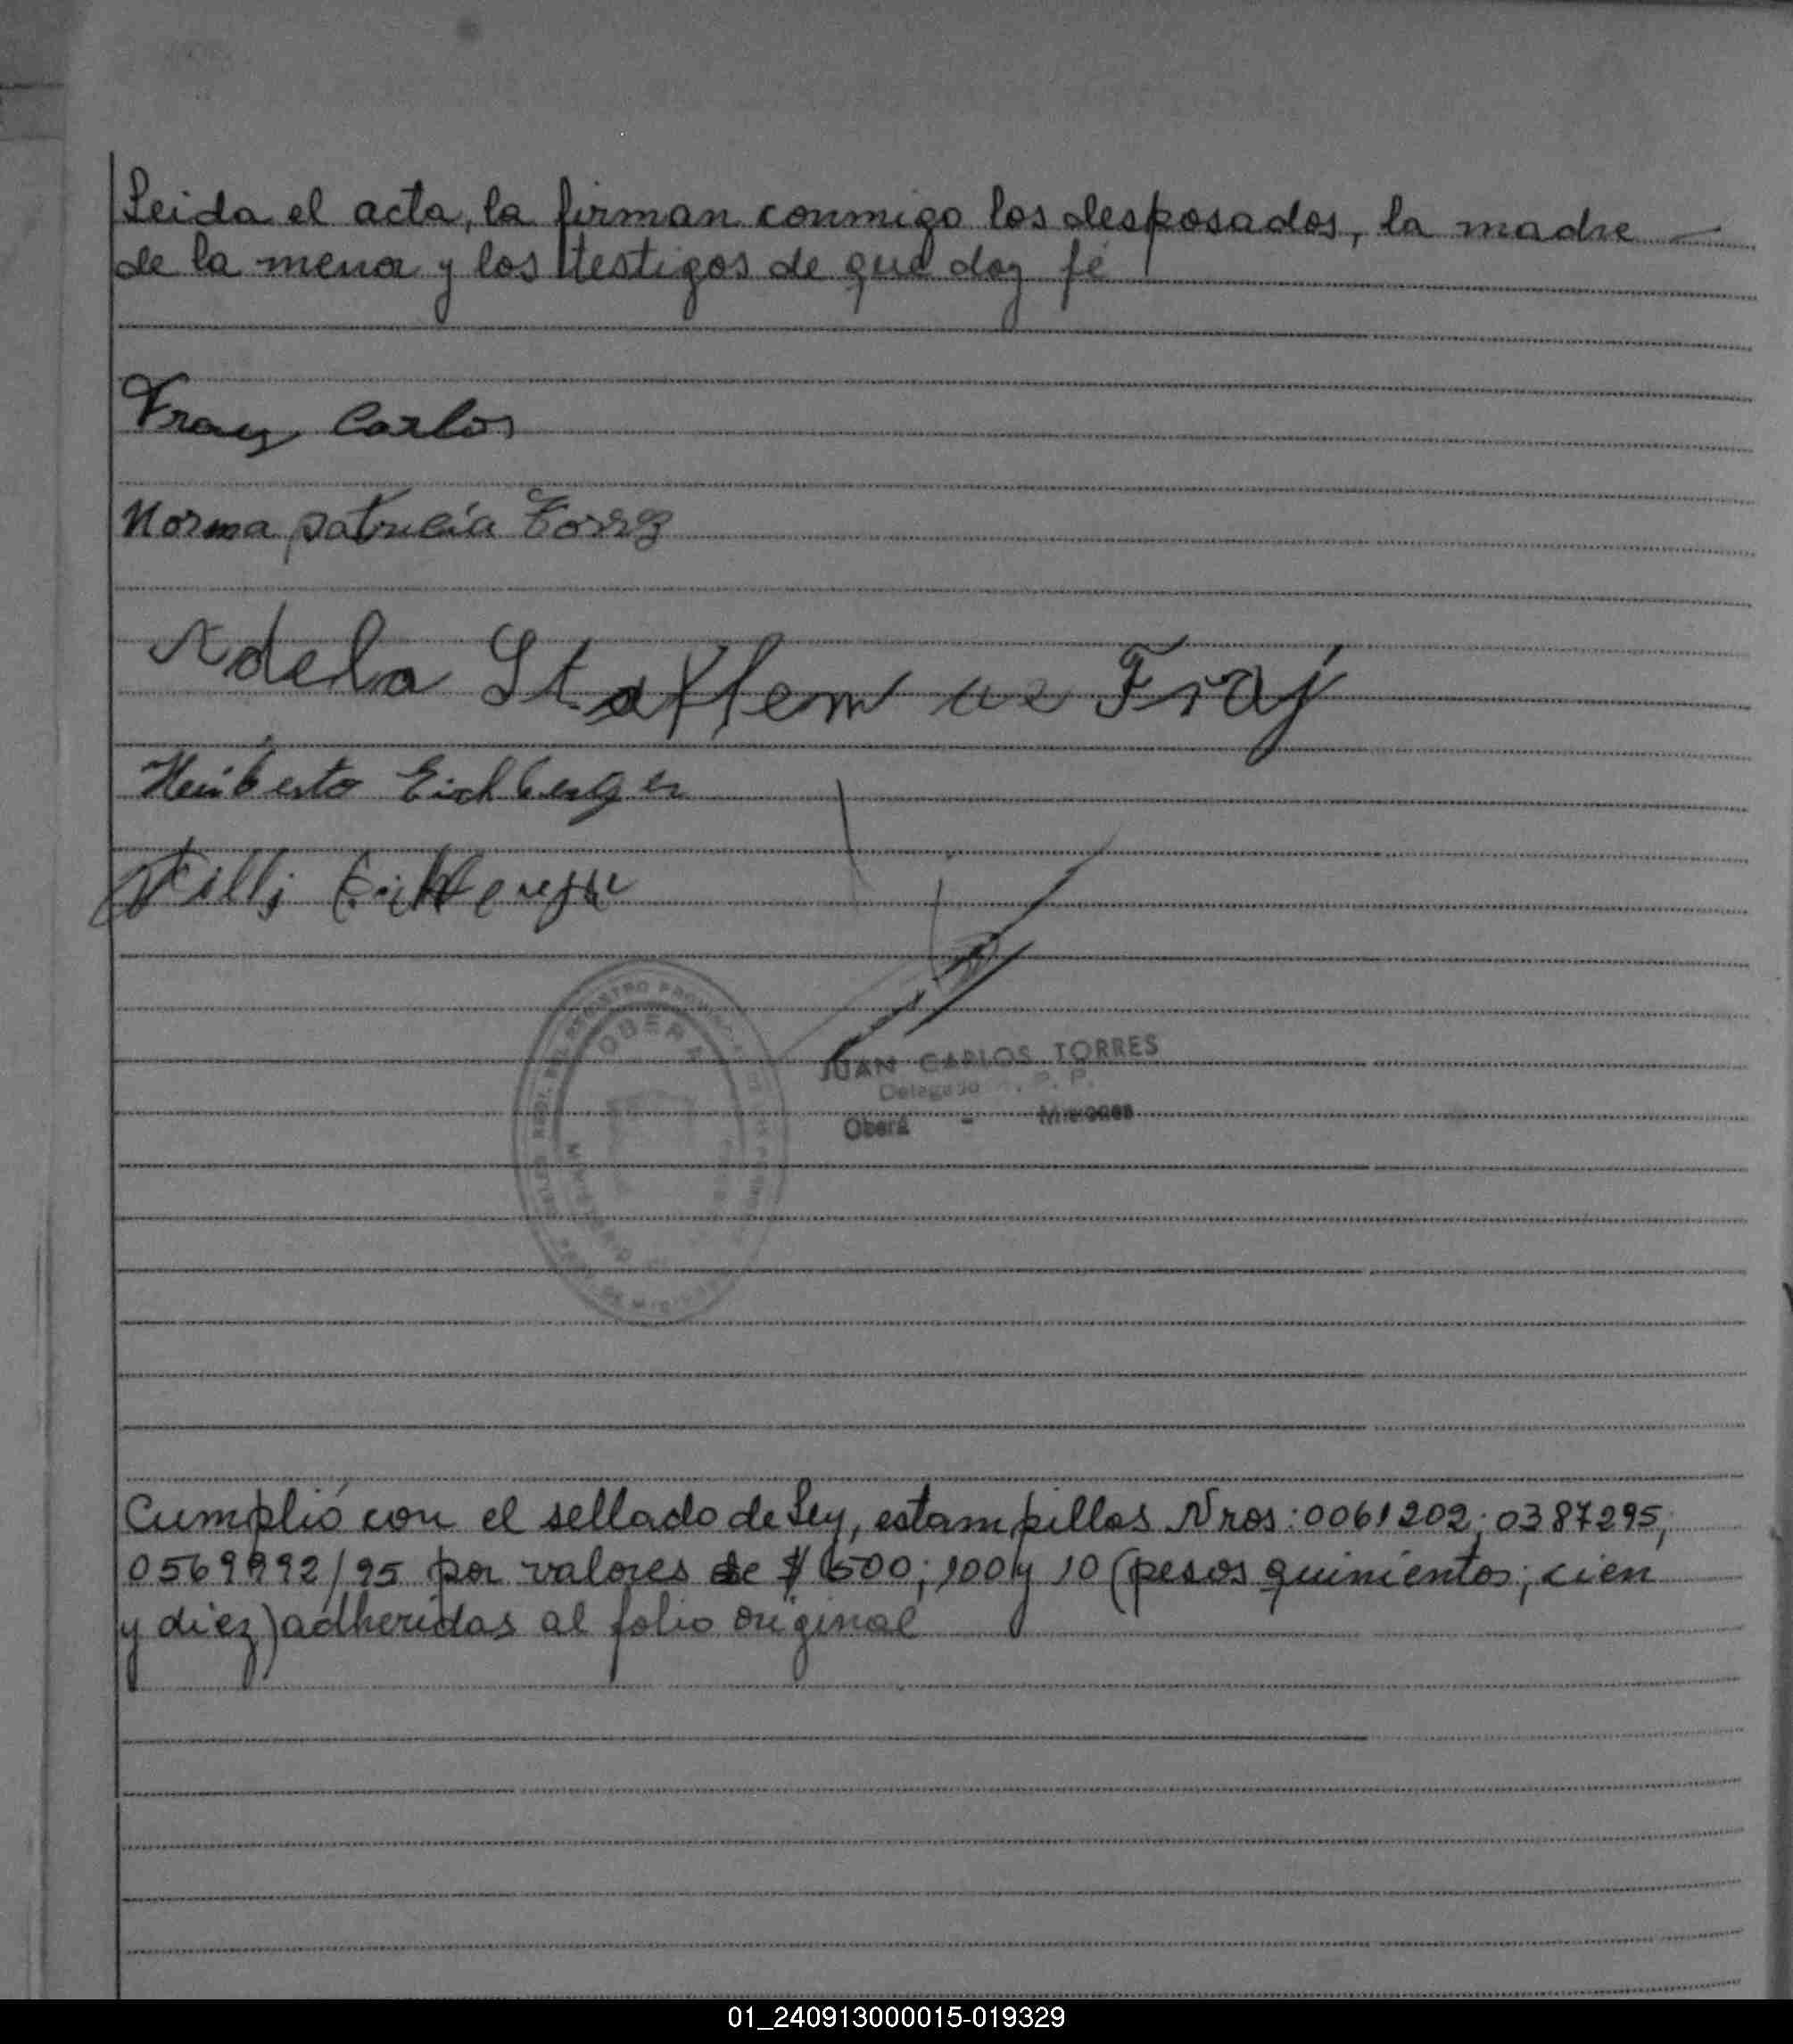 Leida el acta, la firman conmigo los desposados, la madre
de la menor y los testigos de que doy fé
Fray Carlos
Norma patricia
Adela de Fray
Heriberto Eichberger
Willi Eichberger
OBERA
JUAN CARLOS TORRES
Delegado R. P. P.
Oberá - Misiones
Cumplió con el sellado de Ley, estampillas Nros: 0061202; 0387295;
0569992/95 por valores de $ 500; 100 y 10 (pesos quinientos; cien
y diez) adheridas al folio original
01_240913000015-019329